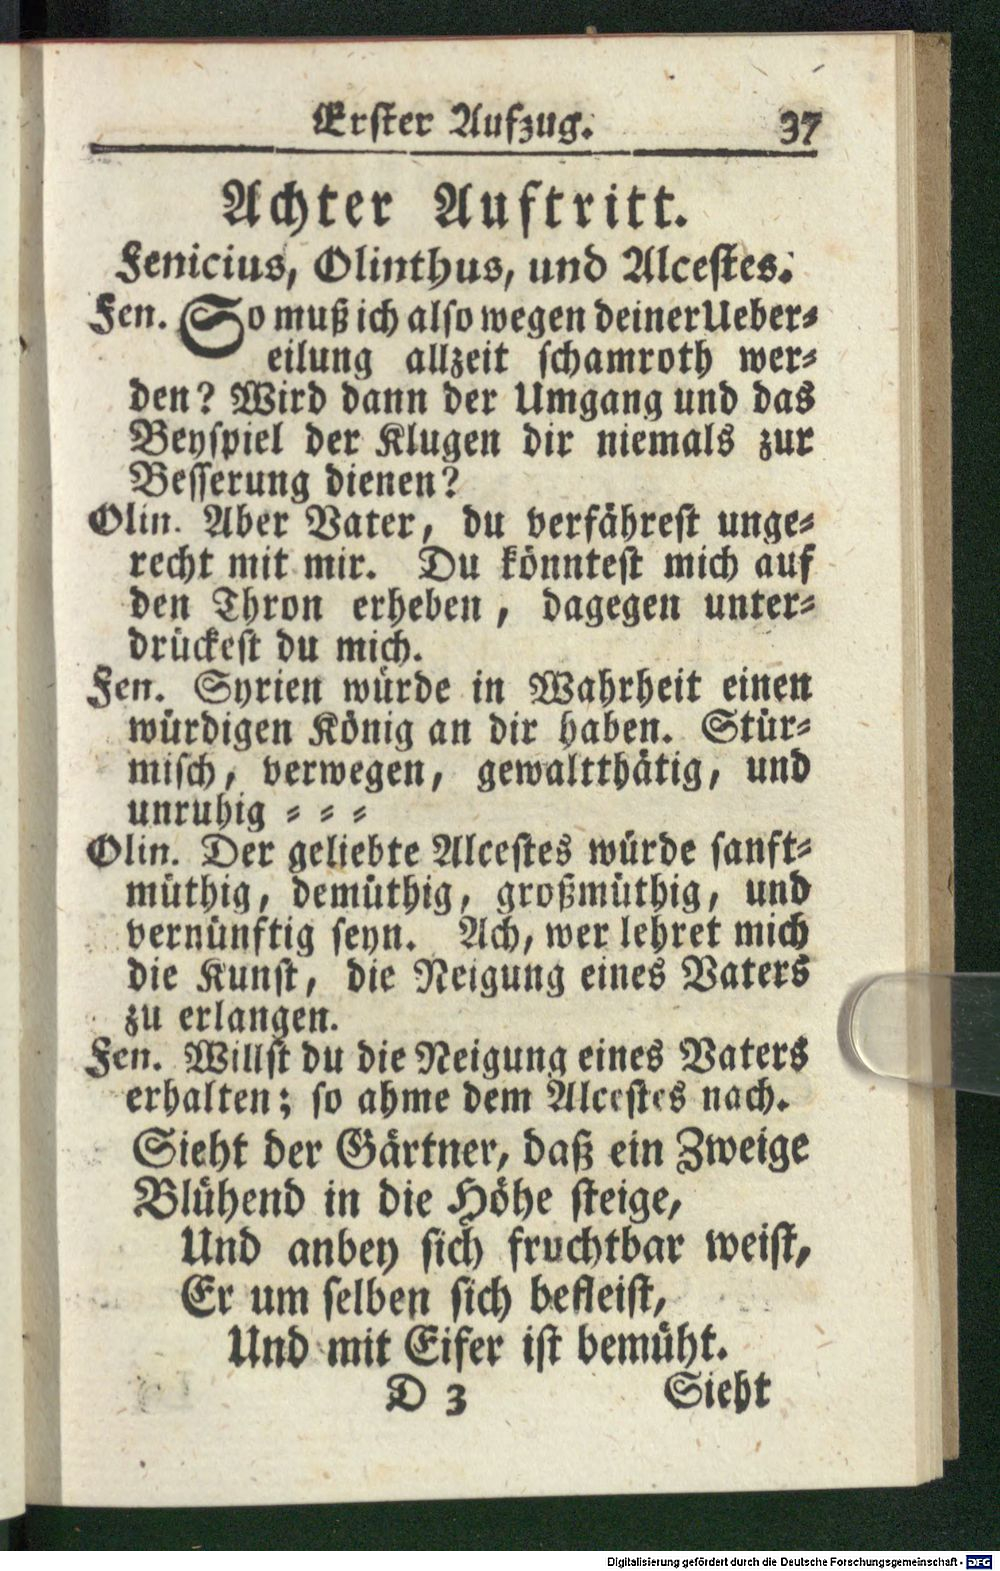 Erster Aufzug. 37
Achter Auftritt.
Fenicius, Olinthus, und Alcestes.
Fen. So muß ich also wegen deiner Ueber⸗
eilung allzeit schamroth wer⸗
den? Wird dann der Umgang und das
Beyspiel der Klugen dir niemals zur
Besserung dienen?
Olin. Aber Vater, du verfährest unge⸗
recht mit mir. Du könntest mich auf
den Thron erheben, dagegen unter⸗
drückest du mich.
Fen. Syrien würde in Wahrheit einen
würdigen König an dir haben. Stür⸗
misch, verwegen, gewaltthätig, und
unruhig ⸗ ⸗ ⸗
Olin. Der geliebte Alcestes würde sanft⸗
müthig, demüthig, großmüthig, und
vernünftig seyn. Ach, wer lehret mich
die Kunst, die Neigung eines Vaters
zu erlangen.
Fen. Willst du die Neigung eines Vaters
erhalten; so ahme dem Alcestes nach.
Sieht der Gärtner, daß ein Zweige
Blühend in die Höhe steige,
Und anbey sich fruchtbar weist,
Er um selben sich befleist,
Und mit Eifer ist bemüht.
D 3 Sieht
Digitalisierung gefördert durch die Deutsche Forschungsgemeinschaft - DFG